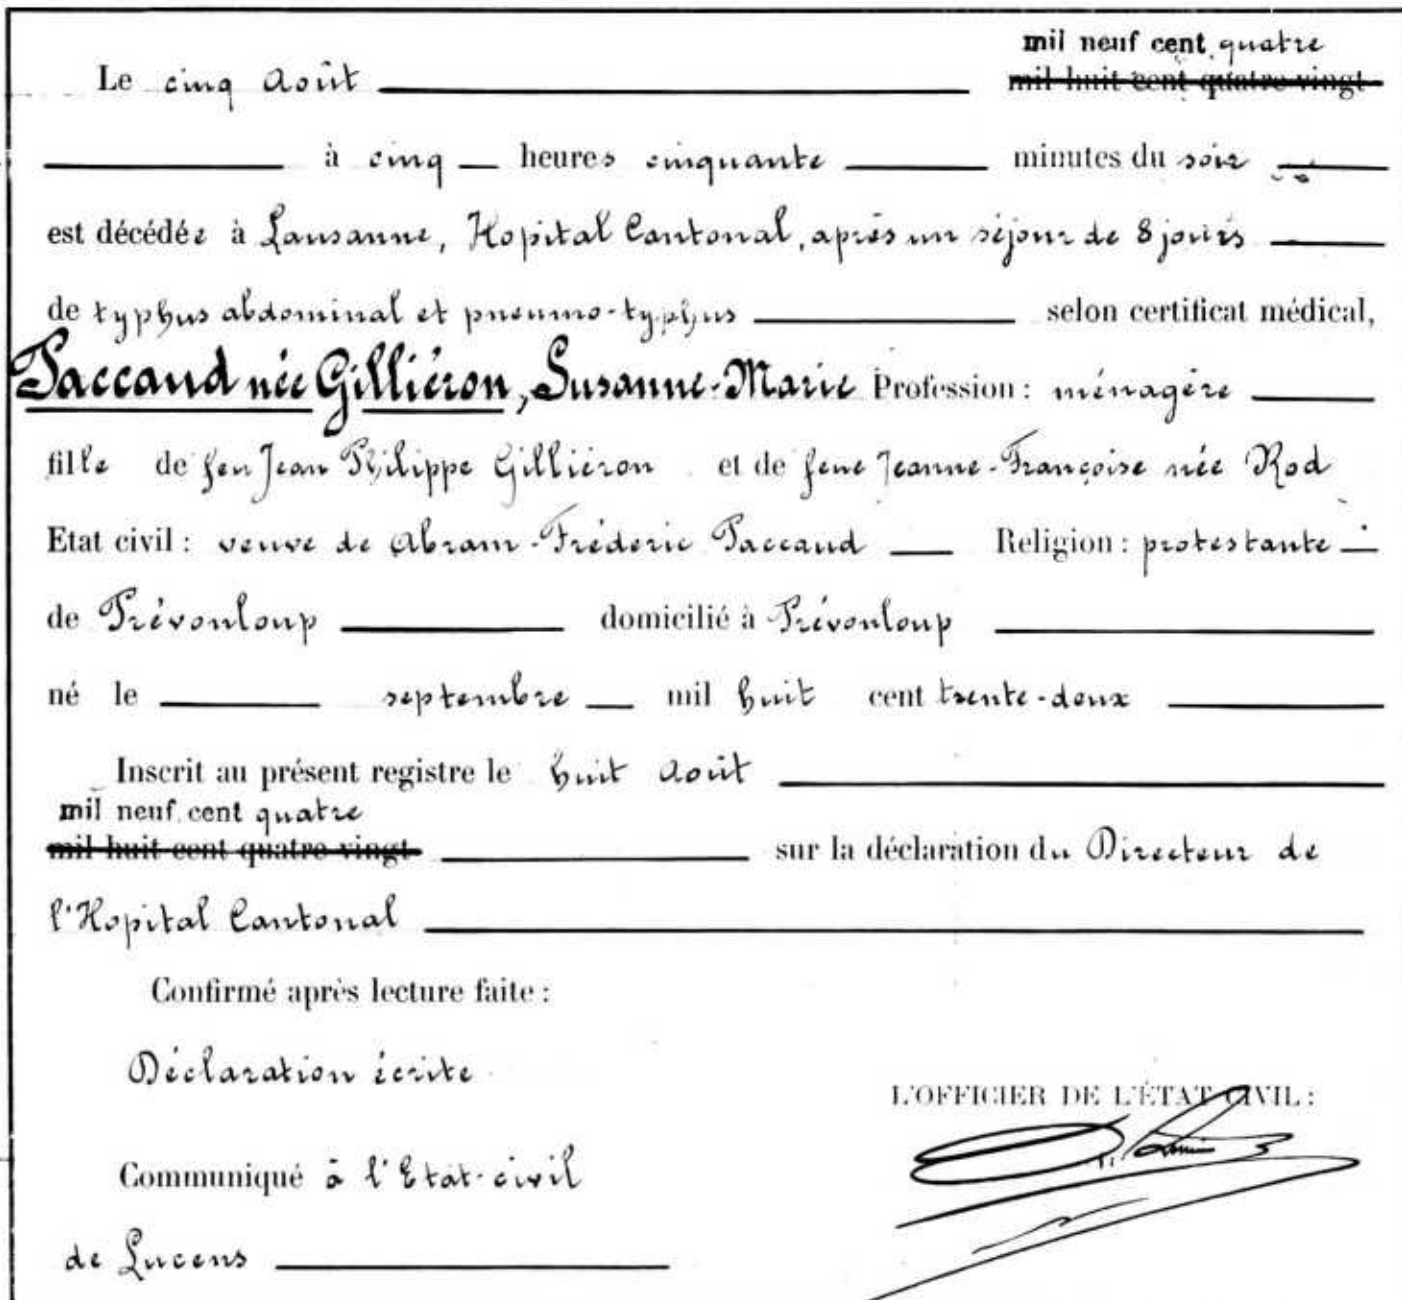 mil neuf cent quatre
Le cinq Août mil huit cent quatre-vingt
à cinq heures cinquante minutes du soir
est décédée à Lausanne, Hopital Cantonal, après un séjour de 8 jours
de typhus abdominal et pneumo-typhus selon certificat médical,
Taccaud née Gilliéron, Susanne-Marie Profession : ménagère
fille de feu Jean Philippe Gilliéron et de feue Jeanne-Françoise née Rod
Etat civil : veuve de Abram-Fréderic Taccaud Religion : protestante
de Prévonloup domicilié à Prévonloup
né le septembre mil huit cent trente-deux
Inscrit au présent registre le huit Août
mil neuf cent quatre
mil huit cent quatre-vingt sur la déclaration du Directeur de
l'Hopital Cantonal
Confirmé après lecture faite :
Déclaration écrite
L'OFFICIER DE L'ÉTAT CIVIL :
Communiqué à l'Etat-civil
de Lucens